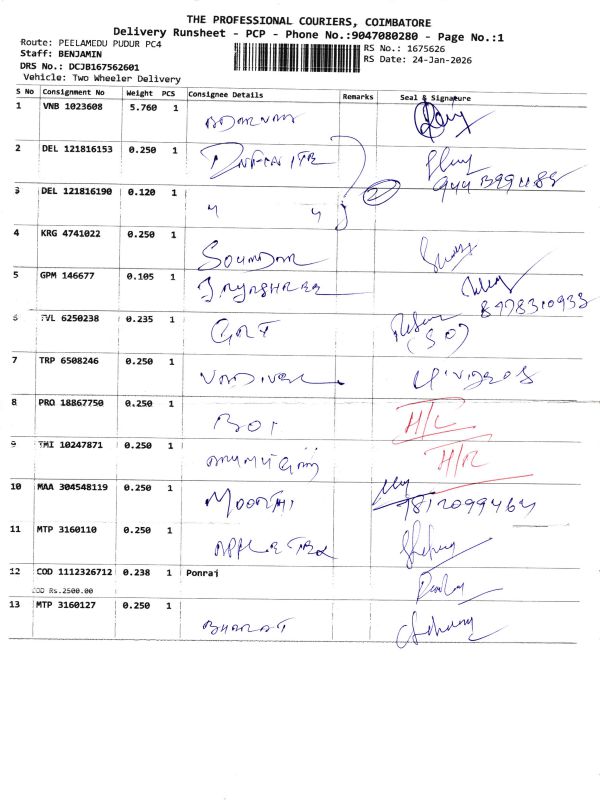 THE PROFESSIONAL COURIERS, COIMBATORE
Delivery Runsheet - PCP - Phone No.:9047080280 - Page No.:1
Route: PEELAMEDU PUDUR PC4
Staff: BENJAMIN
DRS No.: DCJB167562601
Vehicle: Two Wheeler Delivery
RS No.: 1675626
RS Date: 24-Jan-2026
S No Consignment No Weight PCS Consignee Details Remarks Seal & Signature
1 VNB 1023608 5.760 1
2 DEL 121816153 0.250 1
3 DEL 121816190 0.120 1 " " 2
4 KRG 4741022 0.250 1 SOUNDAR
5 GPM 146677 0.105 1 JAYASHREE 8978310933
6 TVL 6250238 0.235 1 GRT
7 TRP 6508246 0.250 1
8 PRO 18867750 0.250 1 BOI H/L
9 TMI 10247871 0.250 1 H/R
10 MAA 304548119 0.250 1 MOORTHI 9812099464
11 MTP 3160110 0.250 1
12 COD 1112326712 0.238 1 Ponraj
COD Rs.2500.00
13 MTP 3160127 0.250 1 BHARAT